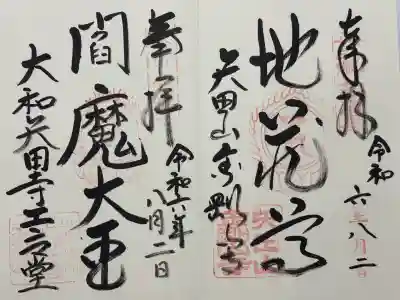 奉拝
令和六年八月二日
地蔵尊
矢田山金剛山寺
奉拝
令和六年
八月二日
閻魔大王
大和矢田寺エンマ堂